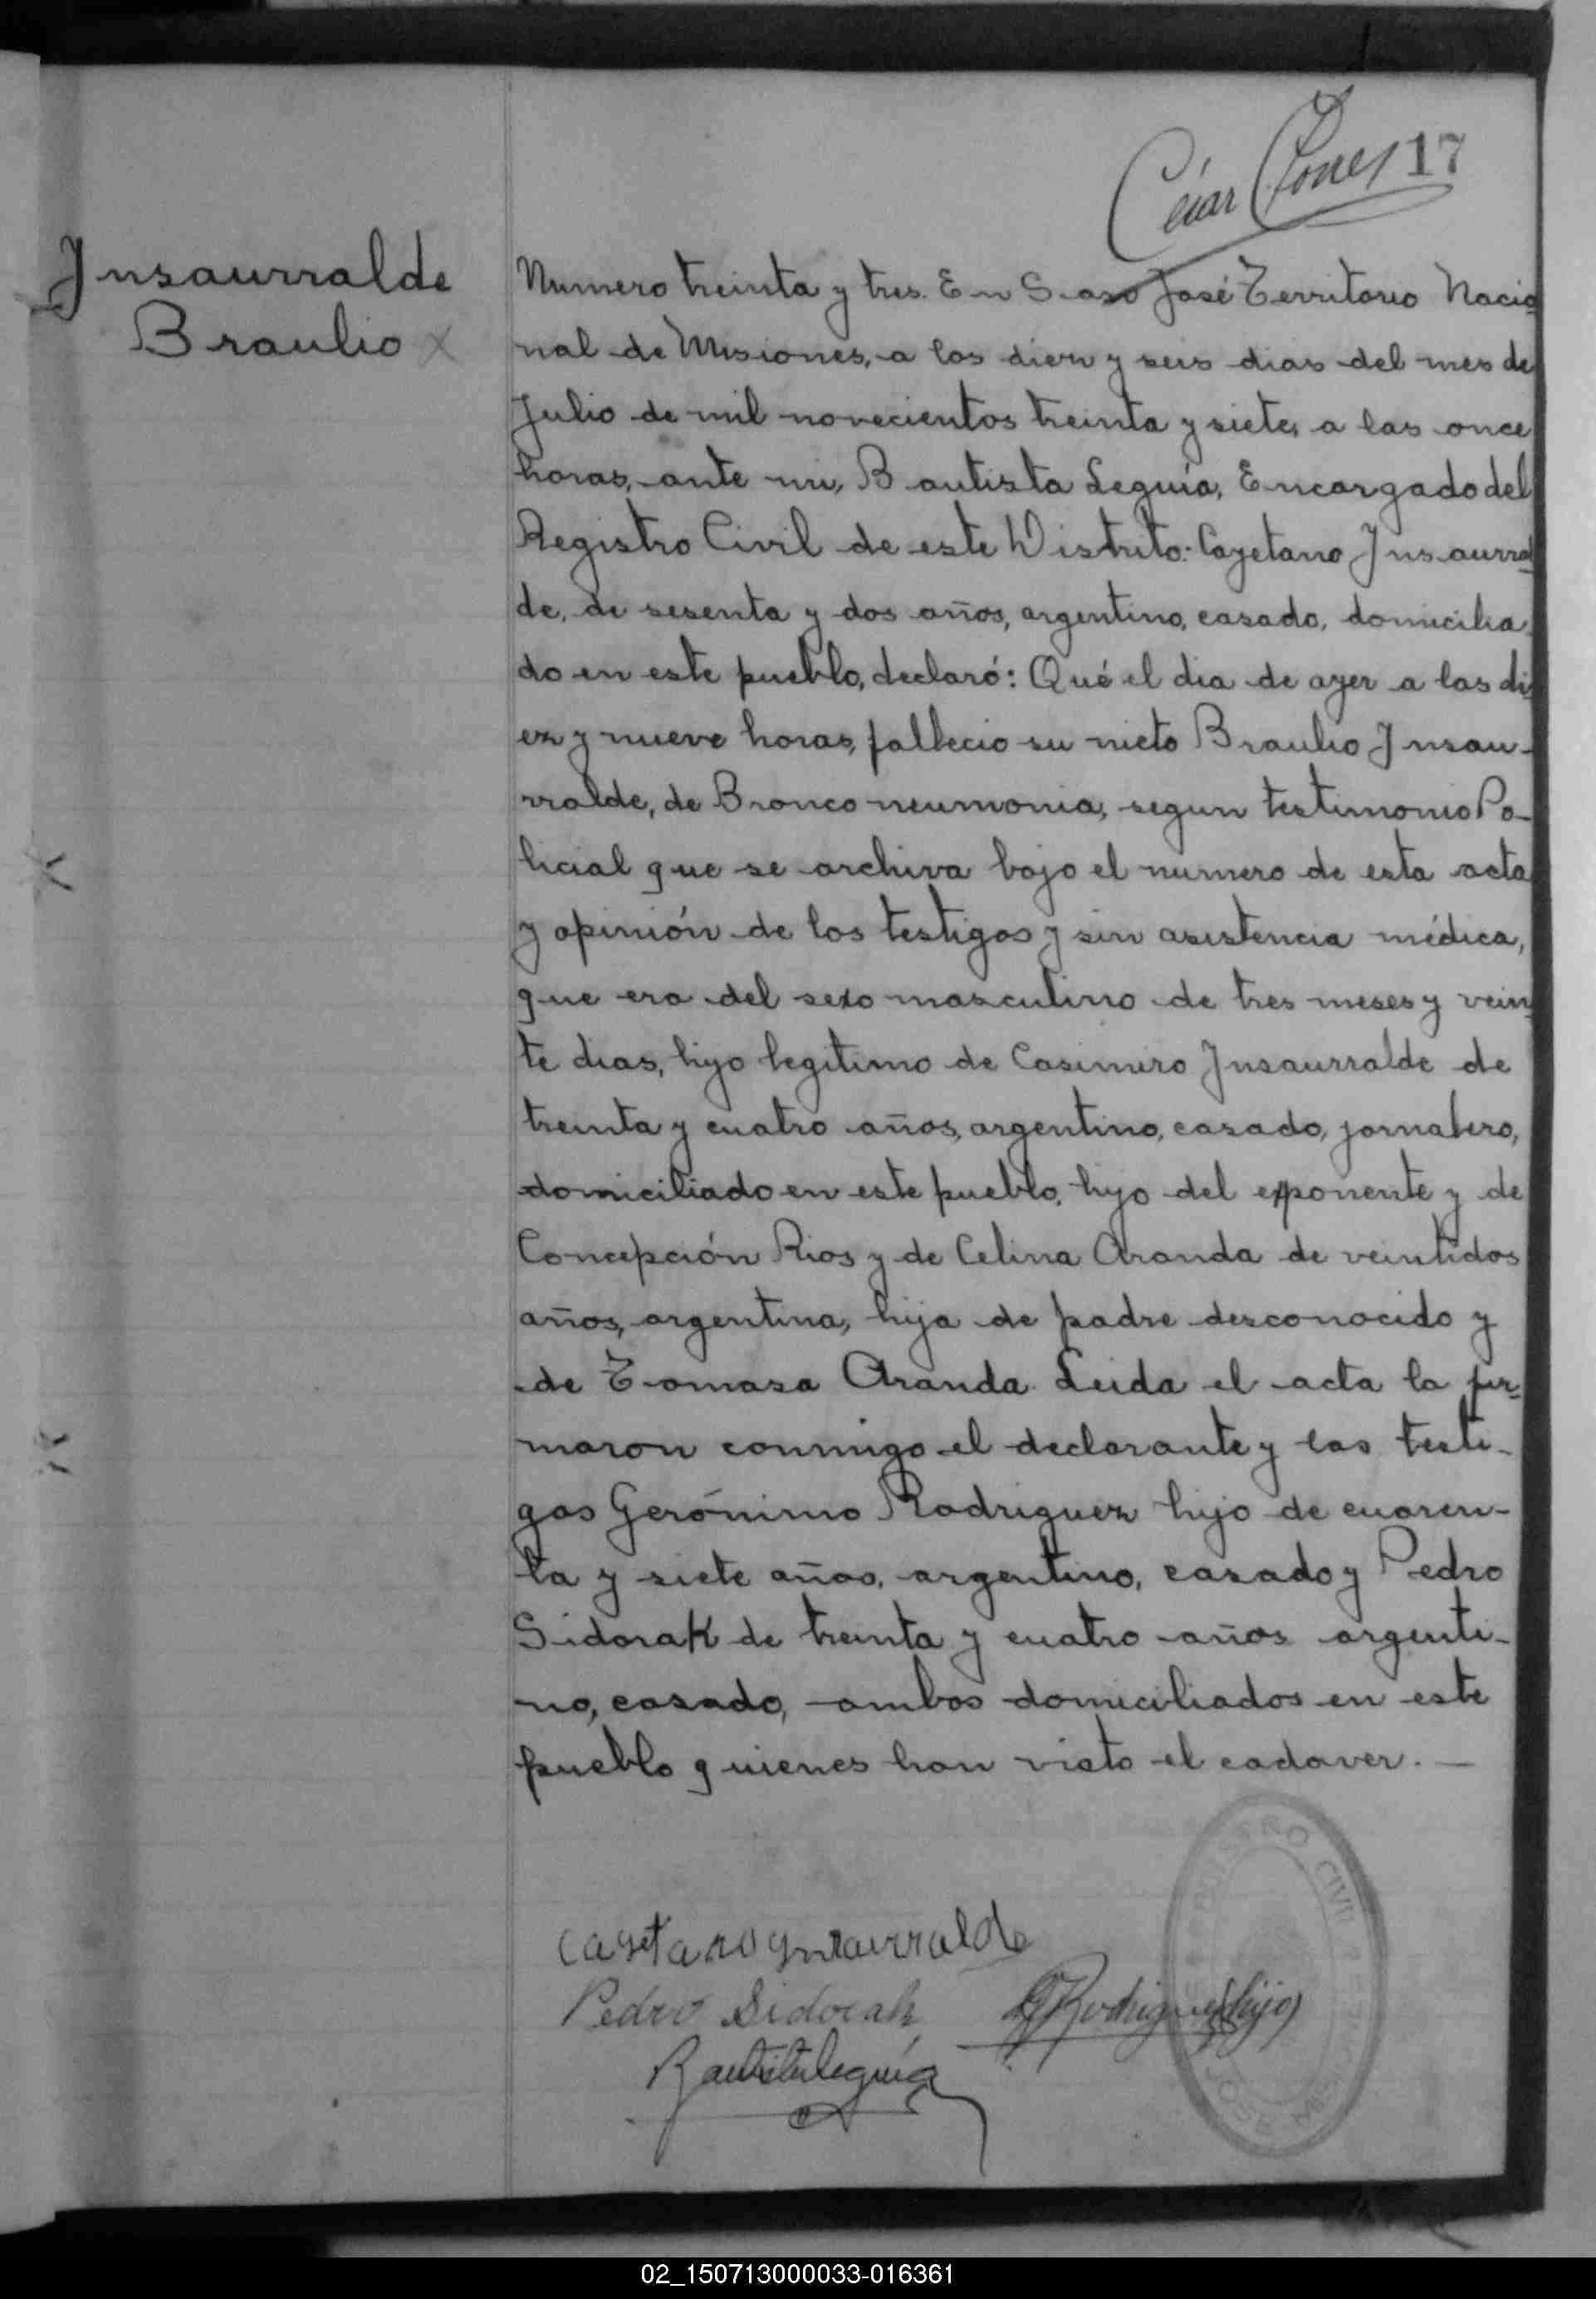 17
Insaurralde
Braulio x
Numero treinta y tres. En San José Territorio Nacio
nal de Misiones, a los diez y seis dias del mes de
Julio de mil novecientos treinta y siete, a las once
horas, ante mi, Bautista Leguía, Encargado del
Registro Civil de este Distrito: Cayetano Insaurral
de, de sesenta y dos años, argentino, casado, domicilia
do en este pueblo, declaró: Qué el dia de ayer a las di
ez y nueve horas, fallecio su nieto Braulio Insau-
rralde, de Bronco neumonia, segun testimonio Po-
licial que se archiva bajo el numero de esta acta
y opinión de los testigos y sin asistencia médica,
que era del sexo masculino de tres meses y vein
te dias, hijo legitimo de Casimiro Insaurralde de
treinta y cuatro años, argentino, casado, jornalero,
domiciliado en este pueblo, hijo del exponente y de
Concepción Rios y de Celina Aranda de veintidos
años, argentina, hija de padre desconocido y
de Tomasa Aranda. Leida el acta la fir-
maron conmigo el declarante y los testi-
gos Gerónimo Rodriguez hijo de cuaren-
ta y siete años, argentino, casado y Pedro
Sidorak de treinta y cuatro años argenti-
no, casado, ambos domiciliados en este
pueblo quienes han visto el cadaver. —
Cayetano Ynsaurralde
Pedro Sidorak G Rodriguez (hijo)
Bautista Leguía
REGISTRO CIVIL
JOSE MIS
02_150713000033-016361